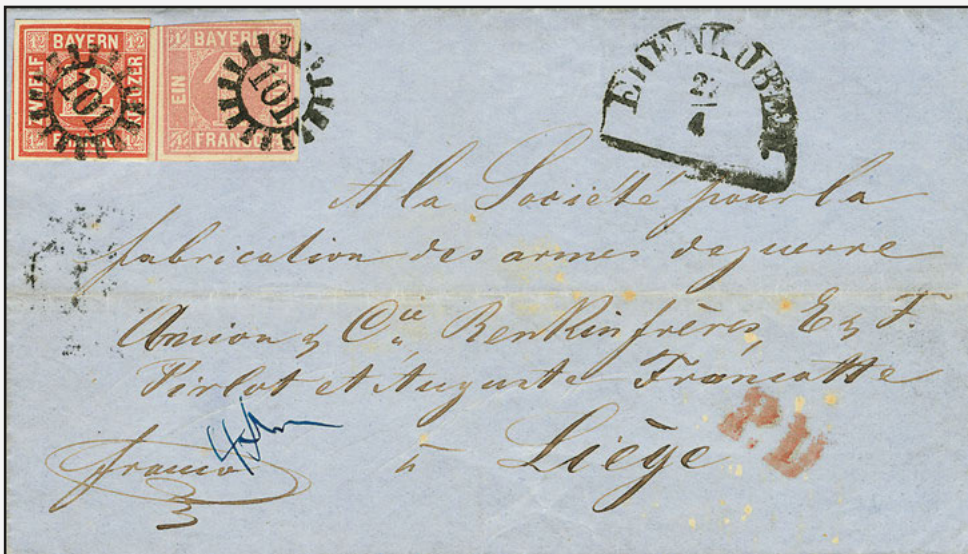 12 BAYERN 12
ZWÖLF
KREUZER
12 FRANCO 12
101
1 BAYERN
EIN
1 FRANCO
101
EDENKOBEN
4
A la Société pour la
fabrication des armes de guerre
Ancion & Cie Renkin frères, E & F.
Pirlot et Auguste Francotte
à Liège
franco
P.D